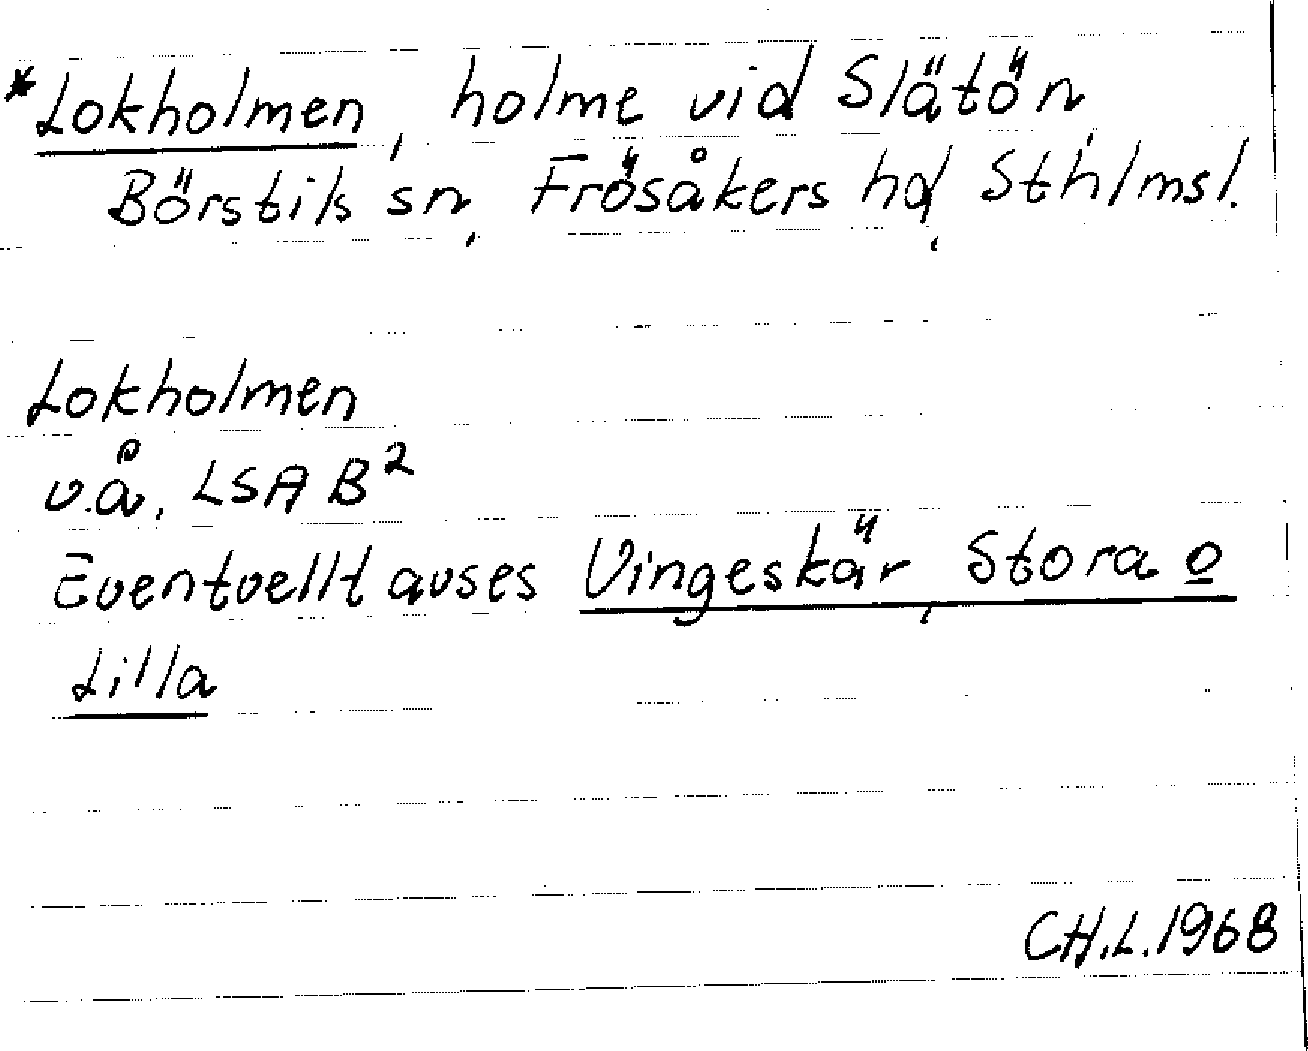 *Lokholmen, holme vid Slätön,
Börstils sn, Frösåkers hd, Sthlmsl.
Lokholmen
u.å. LSA B²
Eventuellt avses Vingeskär, Stora o
Lilla
CH.L.1968